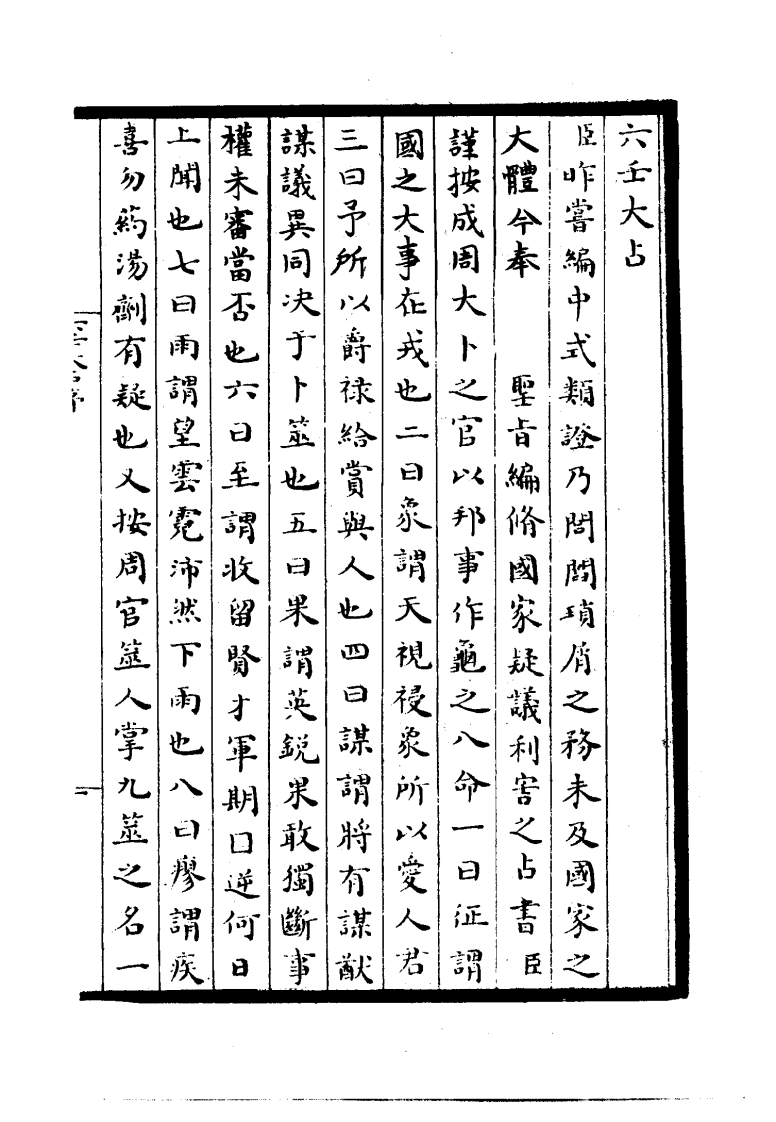 六壬大占
臣昨嘗編中式類證乃閭閻瑣屑之務未及國家之
大體今奉　聖旨編脩國家疑議利害之占書臣
謹按成周大卜之官以邦事作龜之八命一曰征謂
國之大事在戎也二曰象謂天視祲象所以愛人君
三曰予所以爵祿給賞與人也四曰謀謂將有謀猷
謀議異同決于卜筮也五曰果謂英銳果敢獨斷事
權未審當否也六曰至謂收留賢才軍期口逆何日
上聞也七曰雨謂望雲霓沛然下雨也八曰瘳謂疾
喜勿藥湯劑有疑也又按周官筮人掌九筮之名一